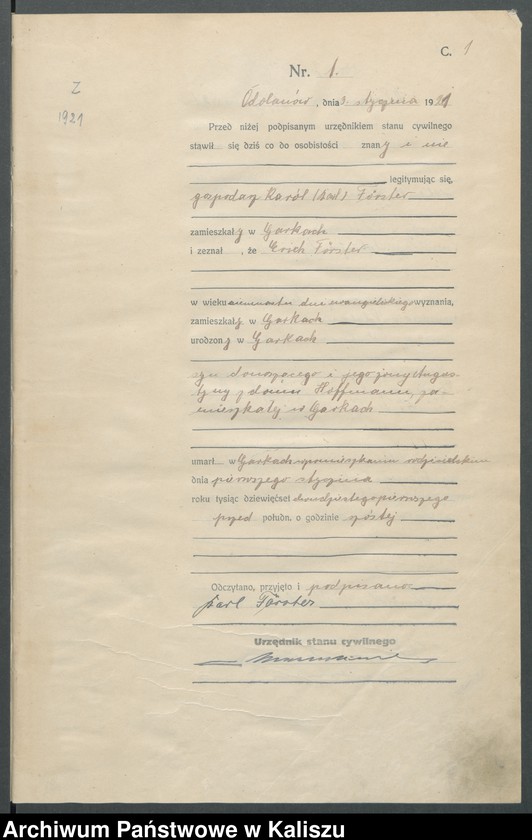 C. 1
Nr. 1.
Z
1921
Odolanów, dnia 3. stycznia 1921
Przed niżej podpisanym urzędnikiem stanu cywilnego
stawił się dziś co do osobistości znany i nie
legitymując się,
gospodarz Karól (Karl) Förster
zamieszkały w Garkach
i zeznał, że Erich Förster
w wieku dni ewangelickiego wyznania,
zamieszkały w Garkach
urodzony w Garkach
syn donoszącego i jego żony Augus-
tyny z domu Hoffmann, za-
mieszkały w Garkach
umarł w Garkach w pomieszkaniu rodzicielskim
dnia pierwszego stycznia
roku tysiąc dziewięćset dwudziestego pierwszego
przed połudn. o godzinie szóstej
Odczytano, przyjęto i podpisano
Karl Förster
Urzędnik stanu cywilnego
Archiwum Państwowe w Kaliszu